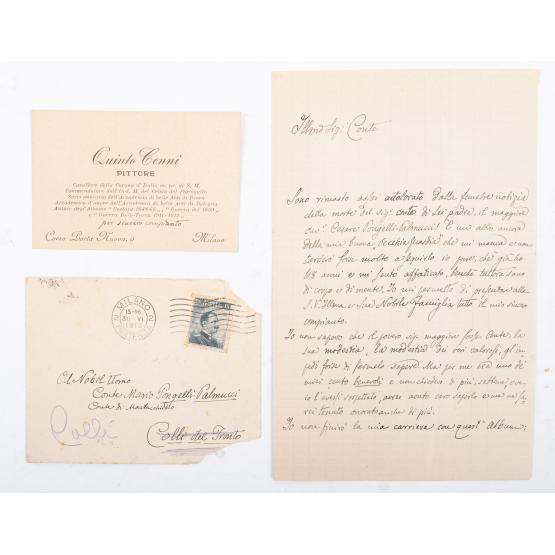 Quinto Cenni
PITTORE
Cavaliere della Corona d'Italia m. pr. di S. M.
Commendatore dell'Ord. M. del Cristo del Portogallo
Socio onorario dell'Accademia di belle Arti di Brera
Accademico d'onore dell'Accademia di belle Arti di Bologna
Autore degli Albums "Custoza 1848-66", "Guerra del 1859",
e "Guerra Italo-Turca 1911-1912"
per sincero compianto
Corso Porta Nuova, 9 Milano
MILANO
15-16
30 VI
1913
Al Nobil Uomo
Conte Mario Pongelli-Palmucci
Conte di
Colli del Tronto
Colli
Illmo Sig: Conte
Sono rimasto assai addolorato dalla funebre notizia
della morte del sig: conte di Lei padre, il maggiore
cav: Cesare Pongelli-Palmucci! È un altro ancora
della mia buona, vecchia guardia che mi manca e non
tarderò forse molto a seguirlo io pure, che già ho
68 anni e mi sento affaticato, benchè tuttora sano
di corpo e di mente. Io mi permetto di presentare alla
S. V. Illma e Sua Nobile Famiglia tutto il mio sincero
compianto.
Io non sapevo che il povero sig: maggiore fosse Conte; la
sua modestia, la modestia dei veri valorosi, gl'im-
pedì forse di farmelo sapere. Ma per me era uno dei
miei cento benevoli e non chiedevo di più, sebbene, ove
io l'avessi sospettato, avrei avuto caro saperlo e me ne sa-
rei tenuto onoratissimo di più.
Io non finirò la mia carriera con quest'Album;